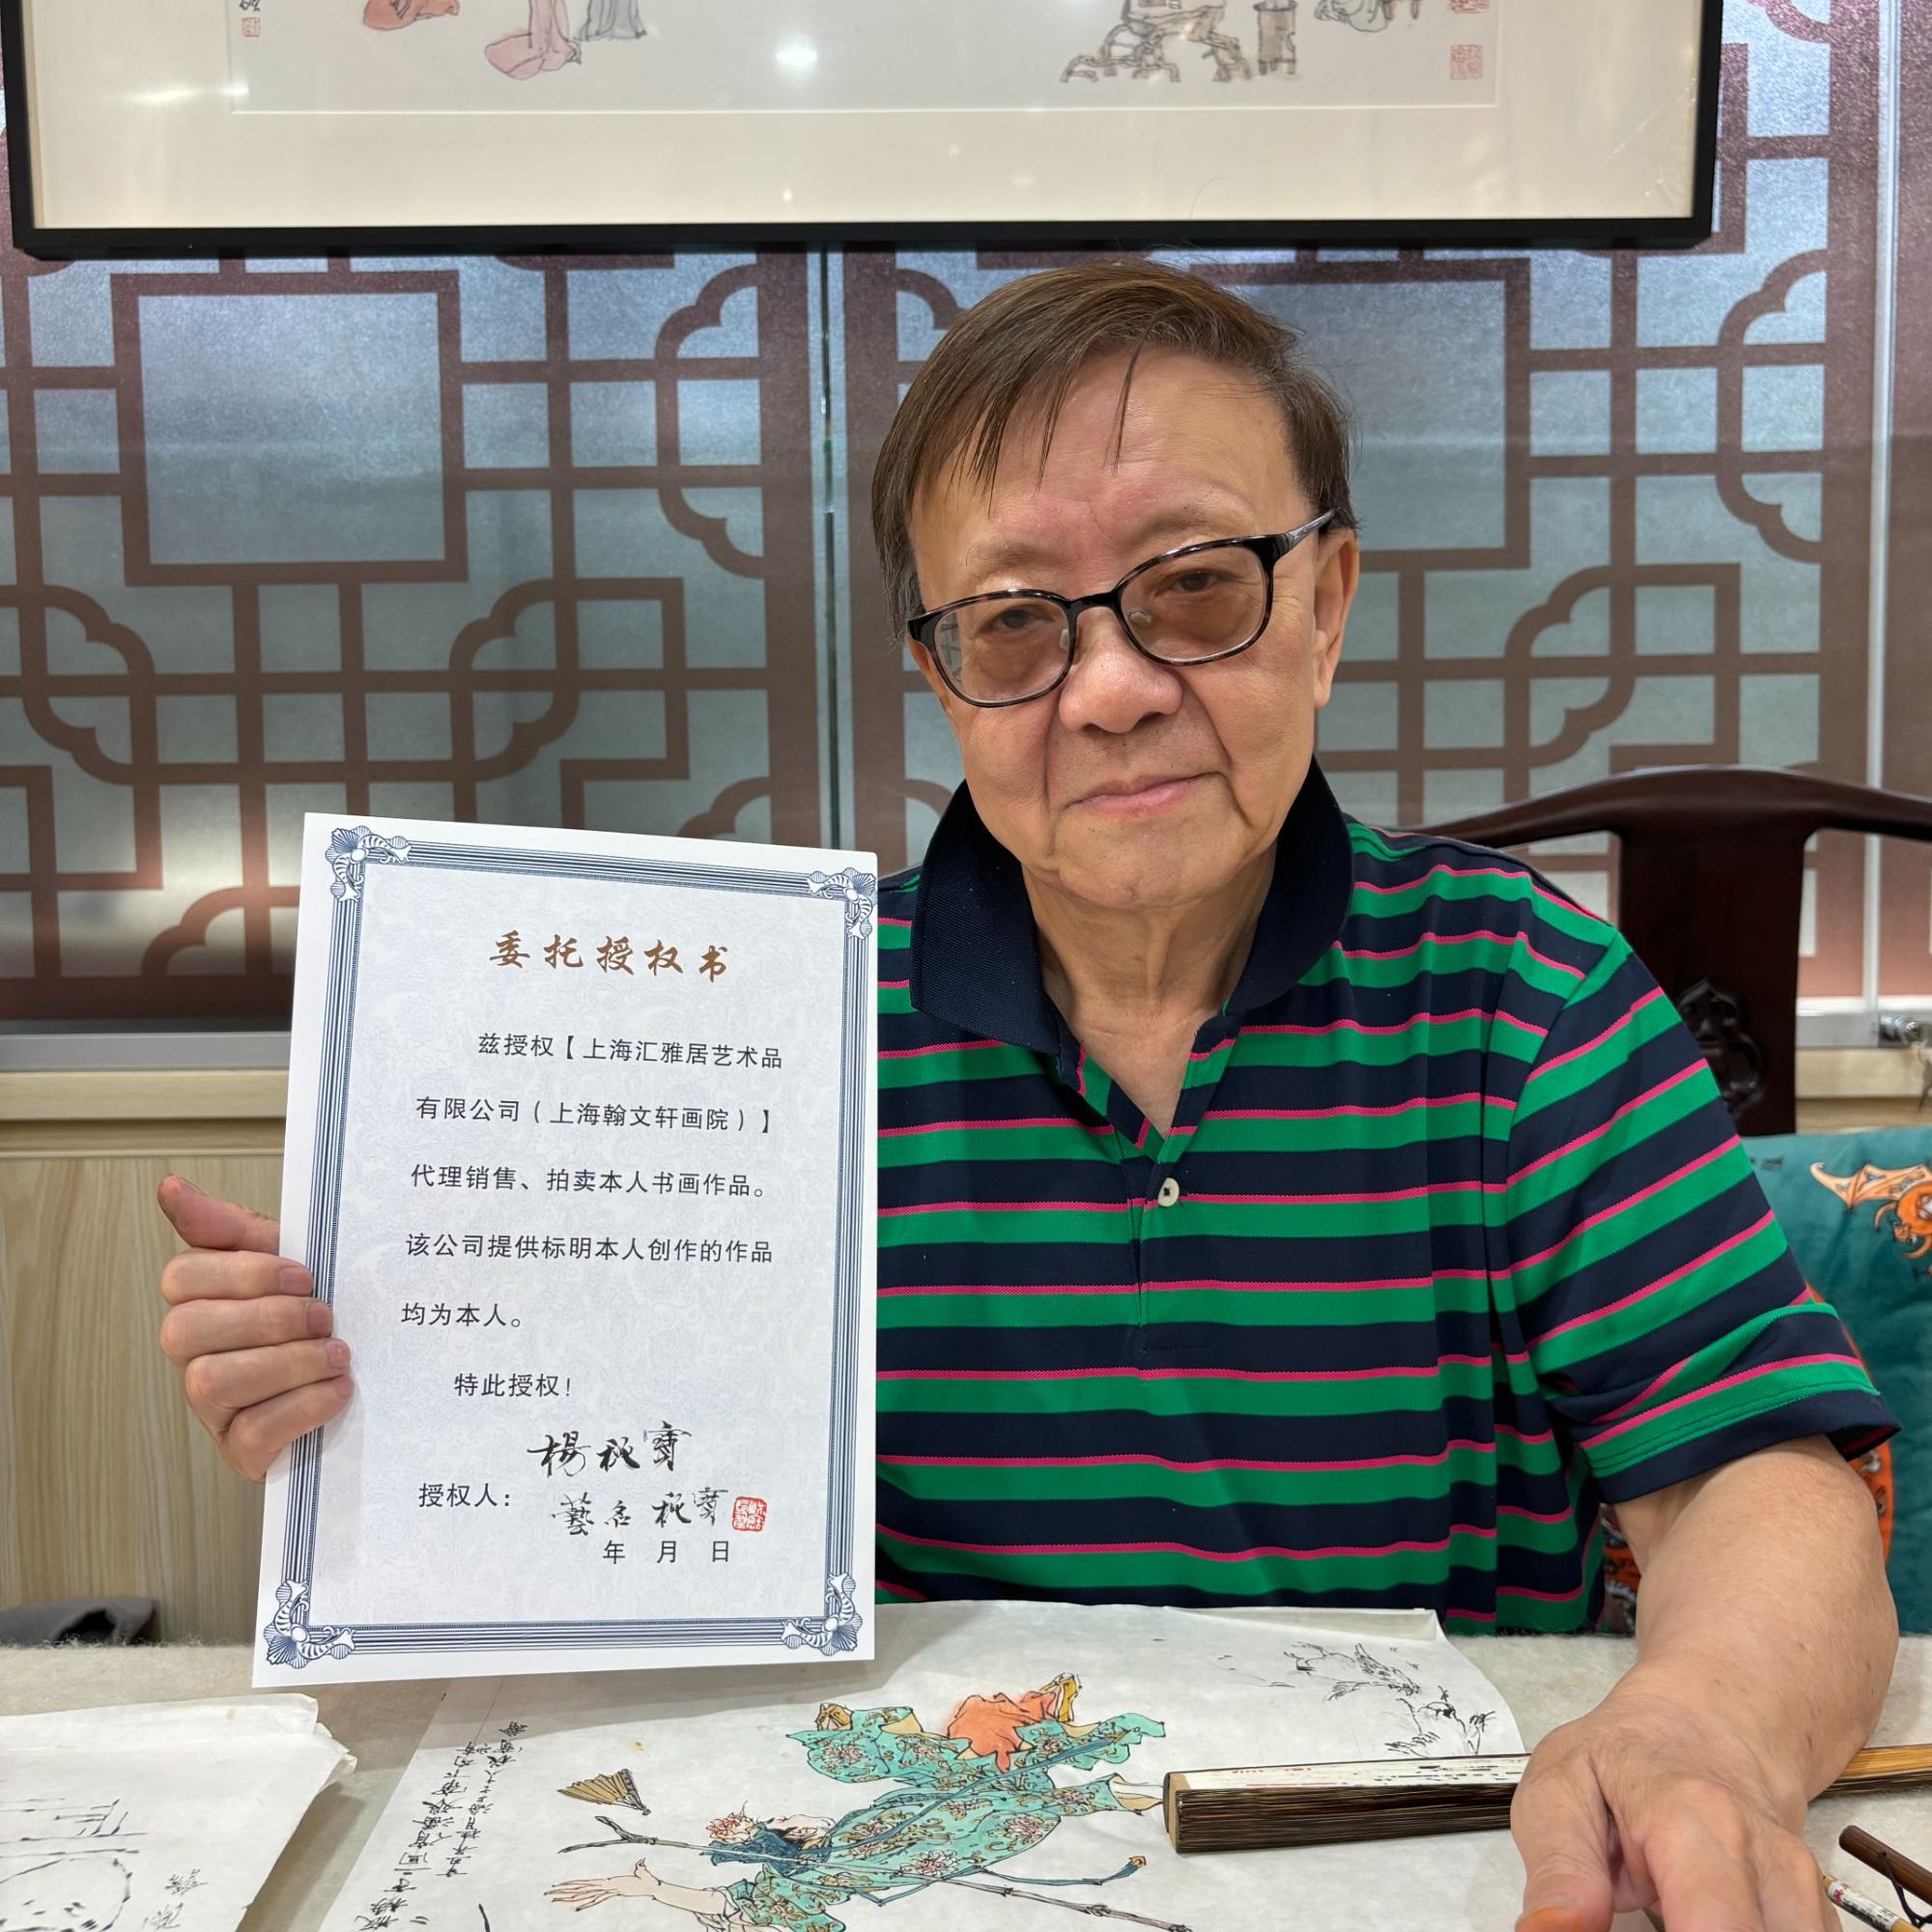 委托授权书
兹授权【上海汇雅居艺术品
有限公司（上海翰文轩画院）】
代理销售、拍卖本人书画作品。
该公司提供标明本人创作的作品
均为本人。
特此授权！
楊秋寶
授权人：藝名 秋寶
年 月 日